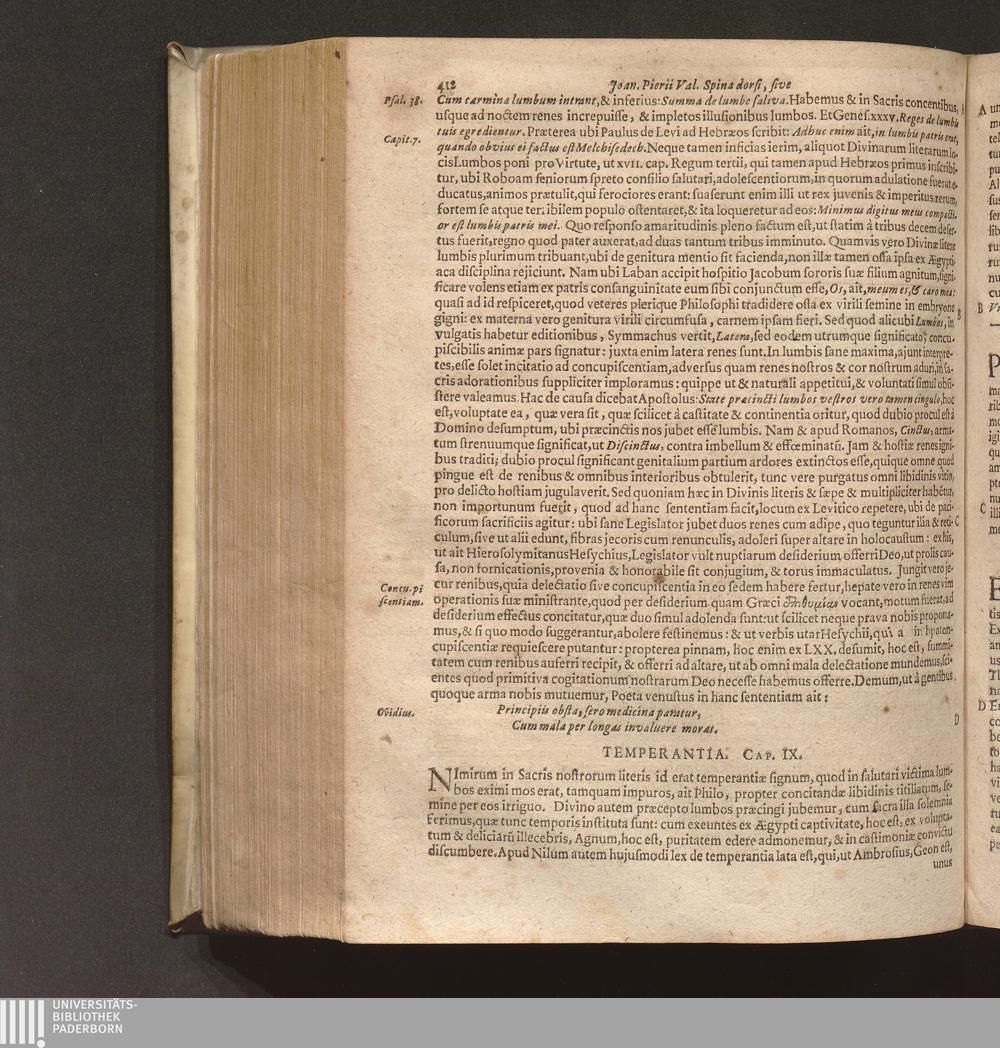 412 Joan. Pierii Val. Spina dorsi, sive
Psal. 38.
Cum carmina lumbum intrant, & inferius: Summa de lumbe saliva. Habemus & in Sacris concentibus,
usque ad noctem renes increpuisse, & impletos illusionibus lumbos. Et Genes. xxxv. Reges de lumbis
tuis egredientur. Præterea ubi Paulus de Levi ad Hebræos scribit: Adhuc enim ait, in lumbis patris erat,
Capit. 7.
quando obvius ei factus est Melchisedech. Neque tamen inficias ierim, aliquot Divinarum literarum lo-
cis Lumbos poni pro Virtute, ut xvii. cap. Regum tertii, qui tamen apud Hebræos primus inscribi-
tur, ubi Roboam seniorum spreto consilio salutari, adolescentiorum, in quorum adulatione fuerat e-
ducatus, animos prætulit, qui ferociores erant: suaserunt enim illi ut rex juvenis & imperitus rerum,
fortem se atque terribilem populo ostentaret, & ita loqueretur ad eos: Minimus digitus meus compacti-
or est lumbis patris mei. Quo responso amaritudinis pleno factum est, ut statim à tribus decem deser-
tus fuerit, regno quod pater auxerat, ad duas tantum tribus imminuto. Quamvis vero Divinæ literæ
lumbis plurimum tribuant, ubi de genitura mentio sit facienda, non illæ tamen ossa ipsa ex Ægypti-
aca disciplina rejiciunt. Nam ubi Laban accipit hospitio Jacobum sororis suæ filium agnitum, signi-
ficare volens etiam ex patris consanguinitate eum sibi conjunctum esse, Os, ait, meum es, & caro mea:
quasi ad id respiceret, quod veteres plerique Philosophi tradidere ossa ex virili semine in embryone
B
gigni: ex materna vero genitura virili circumfusa, carnem ipsam fieri. Sed quod alicubi Lumbos, in
vulgatis habetur editionibus, Symmachus vertit, Latera, sed eodem utrumque significato, concu-
piscibilis animæ pars signatur: juxta enim latera renes sunt. In lumbis sane maxima, ajunt interpre-
tes, esse solet incitatio ad concupiscentiam, adversus quam renes nostros & cor nostrum aduri, in sa-
cris adorationibus suppliciter imploramus: quippe ut & naturali appetitui, & voluntati simul obsi-
stere valeamus. Hac de causa dicebat Apostolus: State præcincti lumbos vestros vero tamen cingulo, hoc
est, voluptate ea, quæ vera sit, quæ scilicet à castitate & continentia oritur, quod dubio procul est à
Domino desumptum, ubi præcinctis nos jubet esse lumbis. Nam & apud Romanos, Cinctus, arma-
tum strenuumque significat, ut Discinctus, contra imbellum & effœminatũ. Jam & hostiæ renes igni-
bus traditi; dubio procul significant genitalium partium ardores extinctos esse, quique omne quod
pingue est de renibus & omnibus interioribus obtulerit, tunc vere purgatus omni libidinis vitio,
pro delicto hostiam jugulaverit. Sed quoniam hæc in Divinis literis & sæpe & multipliciter habentur,
non importunum fuerit, quod ad hanc sententiam facit, locum ex Levitico repetere, ubi de paci-
ficorum sacrificiis agitur: ubi sane Legislator jubet duos renes cum adipe, quo teguntur ilia & reti- C
culum, sive ut alii edunt, fibras jecoris cum renunculis, adoleri super altare in holocaustum: ex his,
ut ait Hierosolymitanus Hesychius, Legislator vult nuptiarum desiderium offerri Deo, ut prolis cau-
sa, non fornicationis, provenia & honorabile sit conjugium, & torus immaculatus. Jungit vero je-
Concupi
scentiam.
cur renibus, quia delectatio sive concupiscentia in eo sedem habere fertur, hepate vero in renes vim
operationis suæ ministrante, quod per desiderium quam Græci ἐπιθυμίαν vocant, motum fuerat, ad
desiderium effectus concitatur, quæ duo simul adolenda sunt: ut scilicet neque prava nobis propona-
mus, & si quo modo suggerantur, abolere festinemus: & ut verbis utar Hesychii, qui a in hpaton-
cupiscentiæ requiescere putantur: propterea pinnam, hoc enim ex LXX. desumit, hoc est, summi-
tatem cum renibus auferri recipit, & offerri ad altare, ut ab omni mala delectatione mundemus, sci-
entes quod primitiva cogitationum nostrarum Deo necesse habemus offerre. Demum, ut à gentibus
quoque arma nobis mutuemur, Poeta venustus in hanc sententiam ait:
Ovidius.
Principiis obsta, sero medicina paratur,
Cum mala per longas invaluere moras.
D
TEMPERANTIA. CAP. IX.
NImirum in Sacris nostrorum literis id erat temperantiæ signum, quod in salutari victima lum-
bos eximi mos erat, tamquam impuros, ait Philo, propter concitandæ libidinis titillatum, se-
mine per eos irriguo. Divino autem præcepto lumbos præcingi jubemur, cum sacra illa solemnia
ferimus, quæ tunc temporis instituta sunt: cum exeuntes ex Ægypti captivitate, hoc est, ex volupta-
tum & deliciarũ illecebris, Agnum, hoc est, puritatem edere admonemur, & in castimoniæ convictu
discumbere. Apud Nilum autem hujusmodi lex de temperantia lata est, qui, ut Ambrosius, Geon est,
unus
UNIVERSITÄTS-
BIBLIOTHEK
PADERBORN